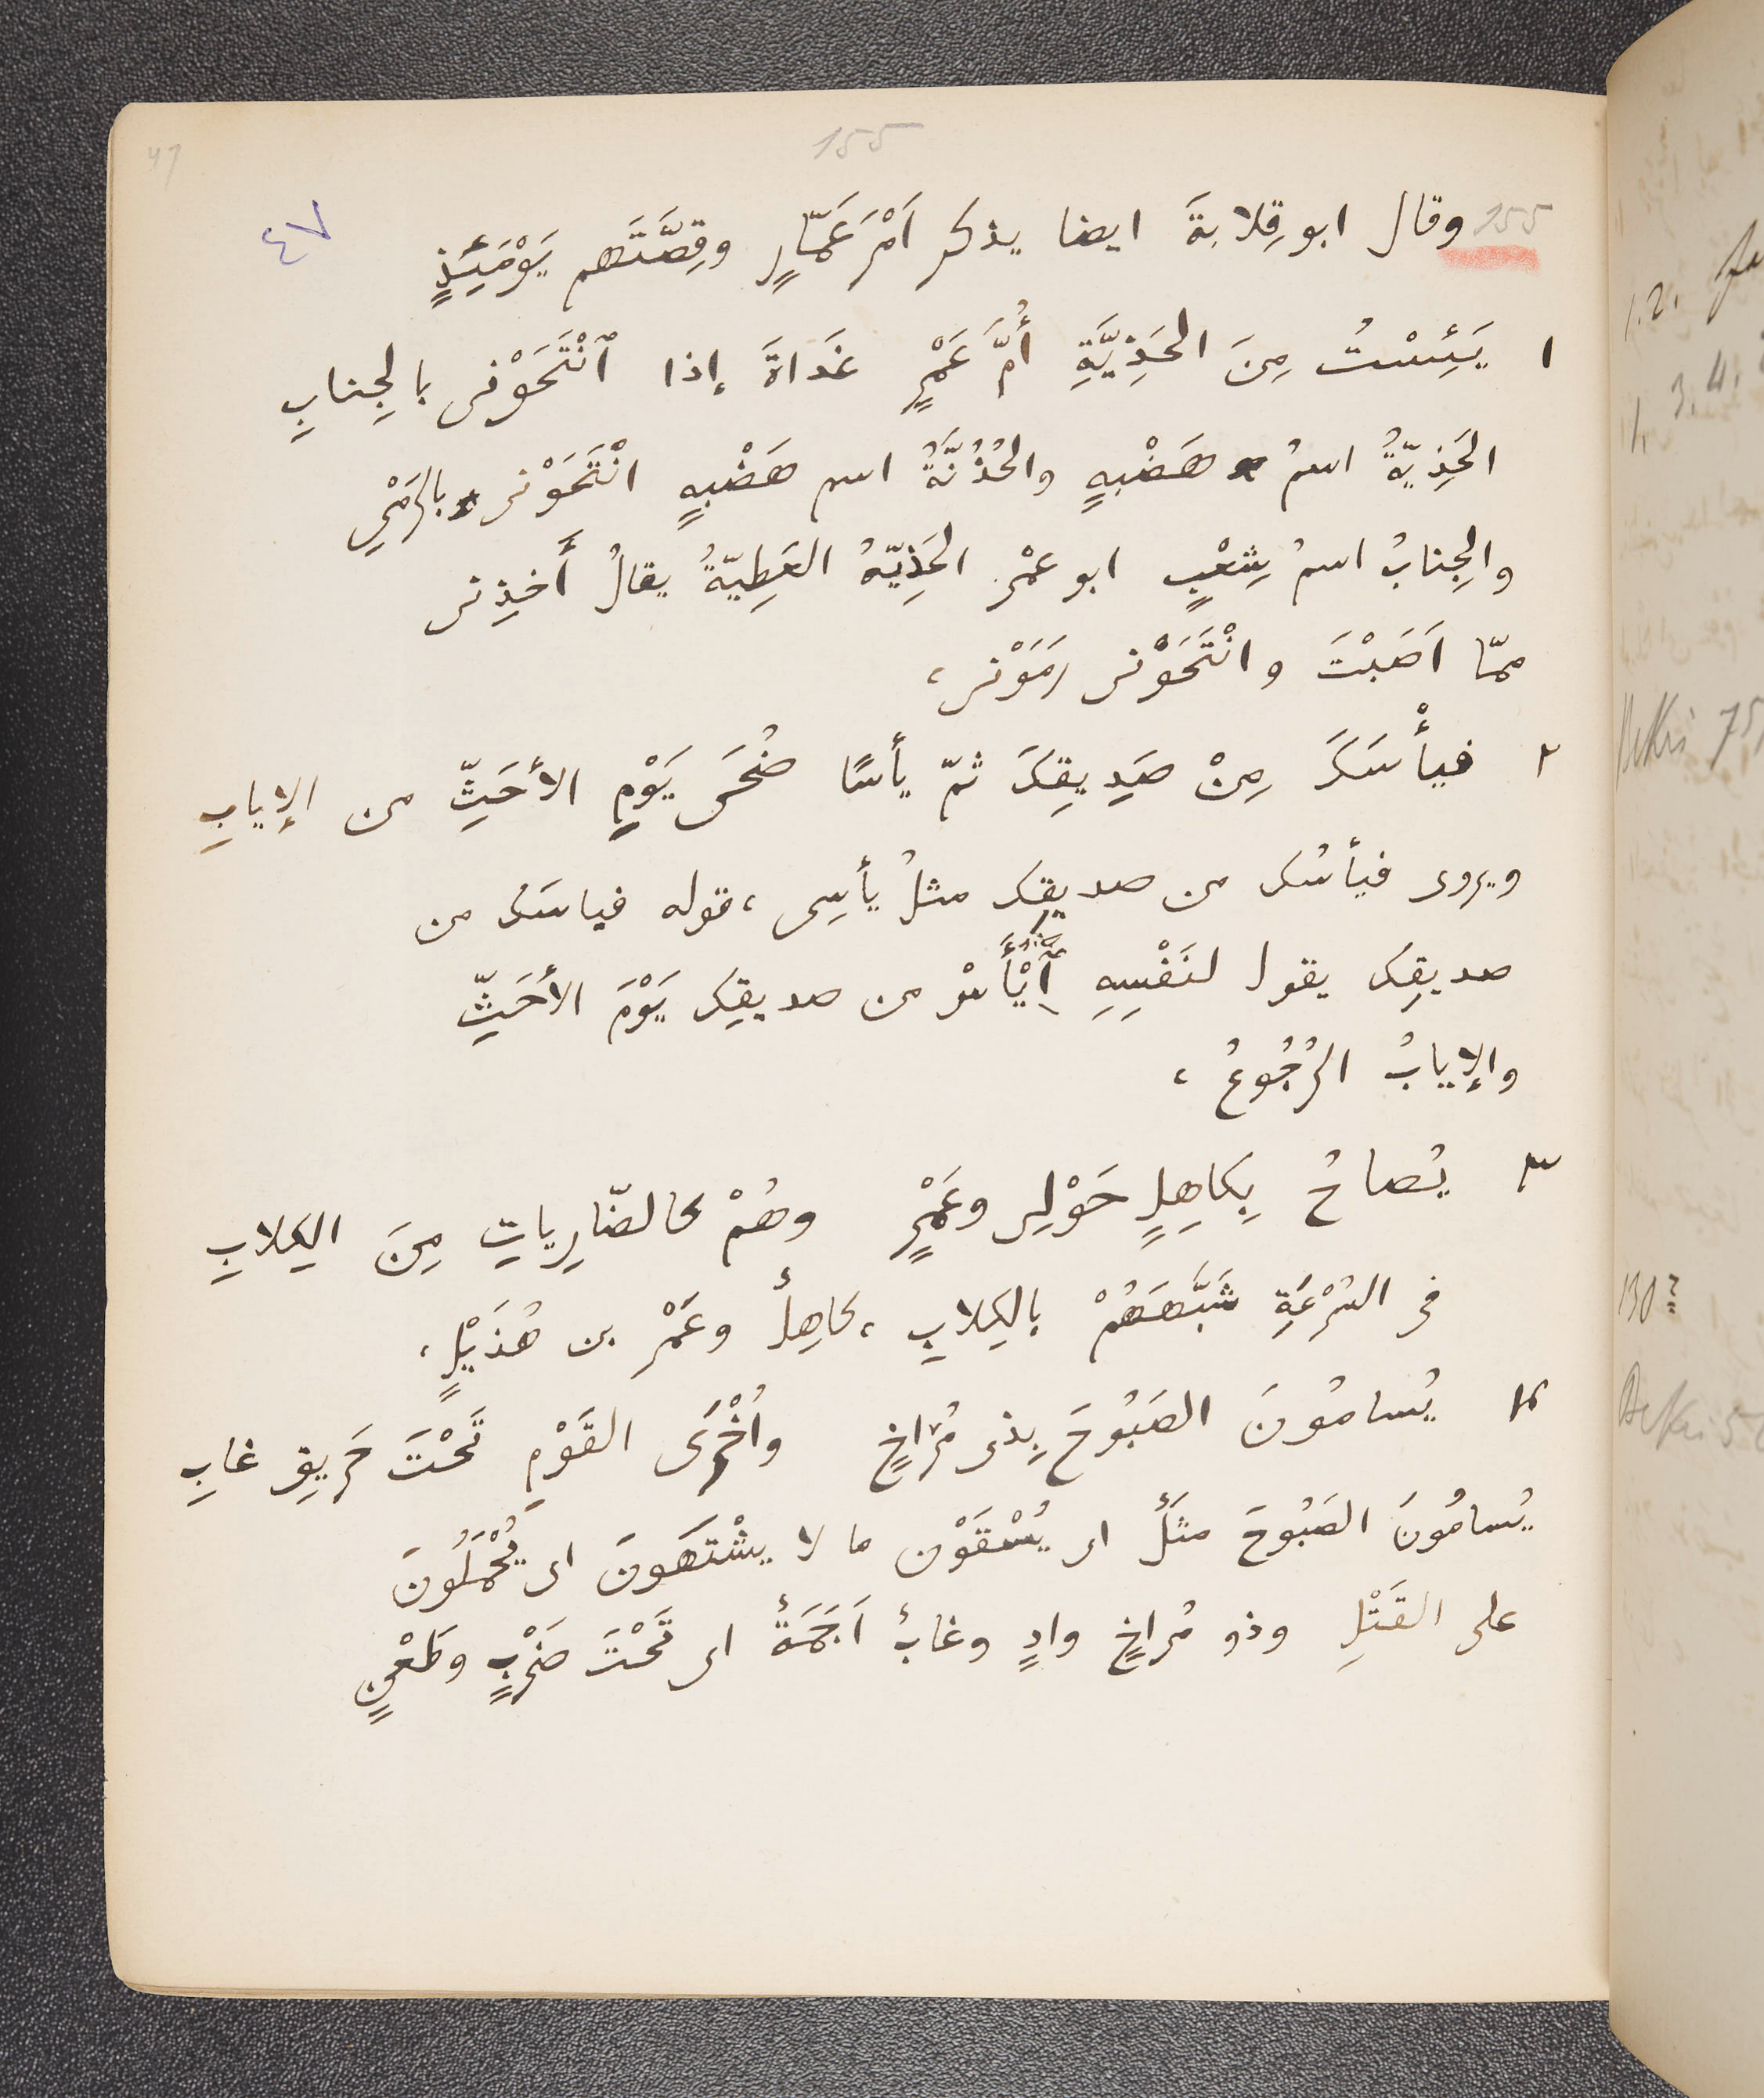 155
47
٤٧
155 وقال ابو قِلابةَ ايضا يذكر اَمْرَ عَمّارٍ وقِصَّتَهم يَوْمَئِذٍ
١ يَئِسْتُ مِنَ الحَذِيَّةِ أُمَّ عَمْرٍ غَداةَ إذا ٱنْتَحَوْنى بالجِنابِ
الحَذِيّةُ اسمُ هَضْبةٍ والحُذُنَّةُ اسم هَضْبةٍ انْتَحَوْنى بالرَمْىِ
والجِنابُ اسمُ شِعْبٍ ابو عمْر الحَذِيّةُ العَطِيّةُ يقالُ أَحْذِنى
ممّا اَصَبْتَ وانْتَحَوْنى رَمَوْنى،
٢ فيأْسَكَ مِنْ صَدِيقِكَ ثمّ يأسًا ضُحَى يَوْمِ الأحَثِّ من الإيابِ
ويروى فيأسُك من صديقِك مثلُ يأسِى، قوله فياسَك من
صديقِك يقول لنَفْسِهِ اِيْأَسْ من صديقِك يَوْمَ الأحَثِّ
والإيابُ الرُجُوعُ،
٣ يُصاحُ بِكاهِلٍ حَوْلِى وعَمْرٍ وهُمْ كالضّارِياتِ مِنَ الكِلابِ
فى السُرْعَةِ شَبَّهَهُمْ بالكِلابِ، كاهِلٌ وعَمْر بن هُذَيْلٍ،
٤ يُسامُونَ الصَبُوحَ بِذى مُراخٍ واُخْرَى القَوْمِ تَحْتَ حَرِيقِ غابِ
يُسامُونَ الصَبُوحَ مثَلٌ اى يُسْقَوْن ما لا يشْتَهَونَ اى يُحْمَلُونَ
على القَتْلِ وذو مُراخٍ وادٍ وغابٌ اَجَمَةٌ اى تَحْتَ ضَرْبٍ وطَعْنٍ